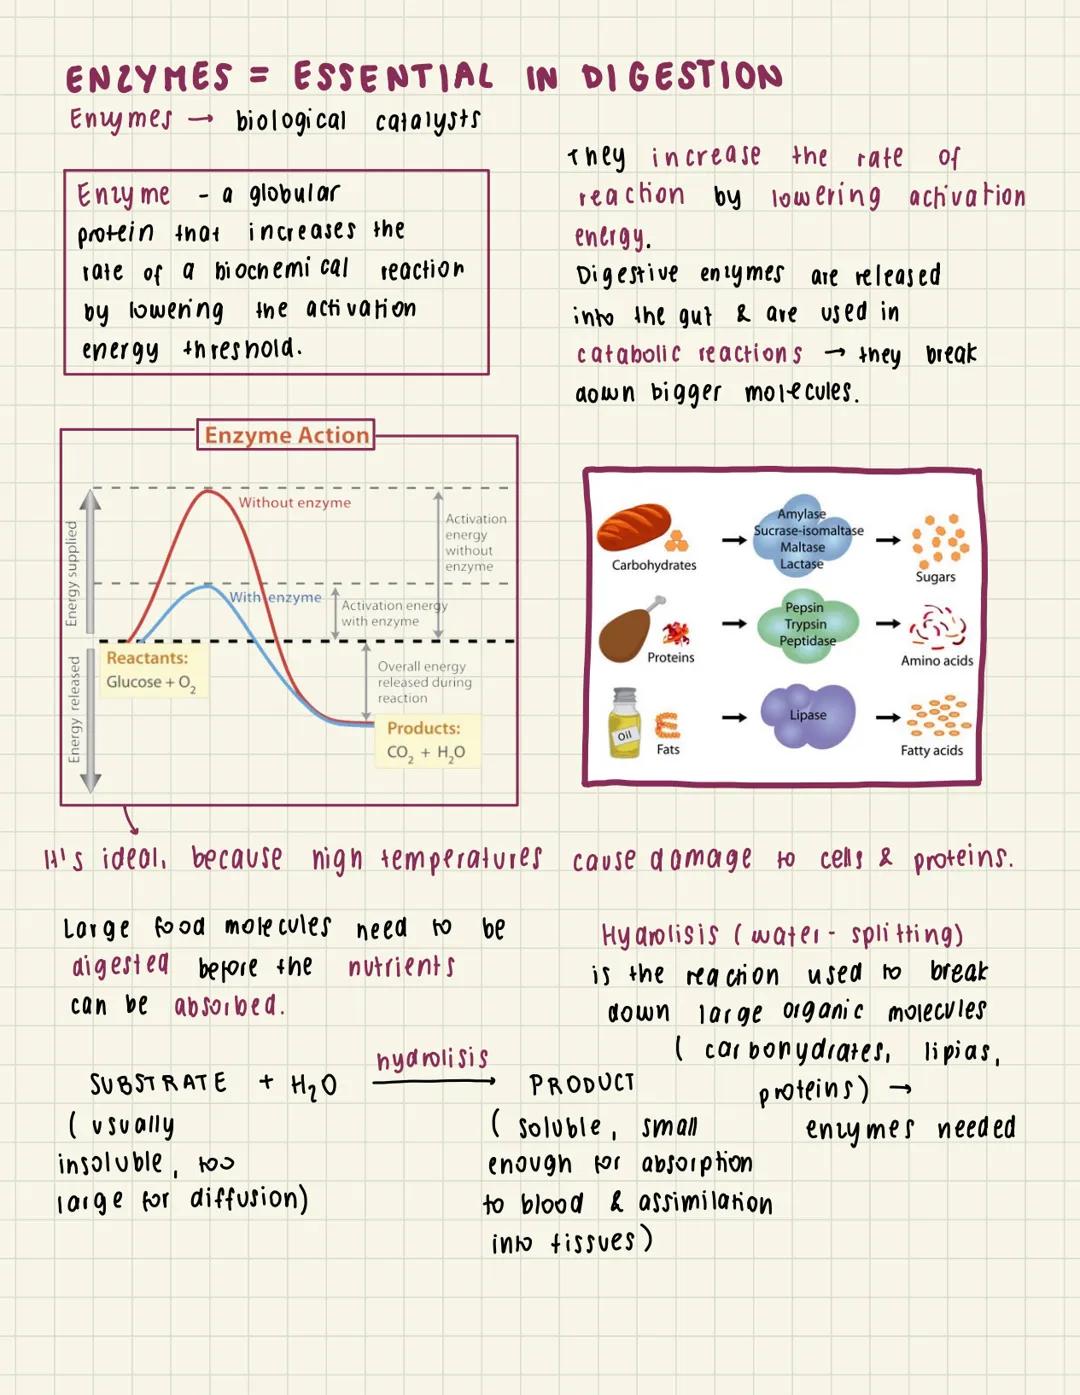 ENZYMES = ESSENTIAL IN DIGESTION
Enzymes → biological catalysts
Enzyme - a globular
protein that increases the
rate of a biochemical reaction
by lowering the activation
energy threshold.
They increase the rate of
reaction by lowering activation
energy.
Digestive enzymes are released
into the gut & are used in
catabolic reactions → they break
down bigger molecules.
Enzyme Action
Energy supplied
Energy released
Without enzyme
With enzyme
Activation
energy
without
enzyme
Activation energy
with enzyme
Reactants:
Glucose + O₂
Overall energy
released during
reaction
Products:
CO₂ + H₂O
Carbohydrates
Amylase
Sucrase-isomaltase
Maltase
Lactase
Sugars
Proteins
Pepsin
Trypsin
Peptidase
Amino acids
Oil
Fats
Lipase
Fatty acids
It's ideal, because high temperatures cause damage to cells & proteins.
Large food molecules need to be
digested before the nutrients
can be absorbed.
Hydrolisis (water-splitting)
is the reaction used to break
down large organic molecules
(carbohydrates, lipids,
proteins) →
enzymes needed
SUBSTRATE + H₂O hydrolisis → PRODUCT
(usually
insoluble, too
large for diffusion)
(soluble, small
enough for absorption
to blood & assimilation
into tissues)